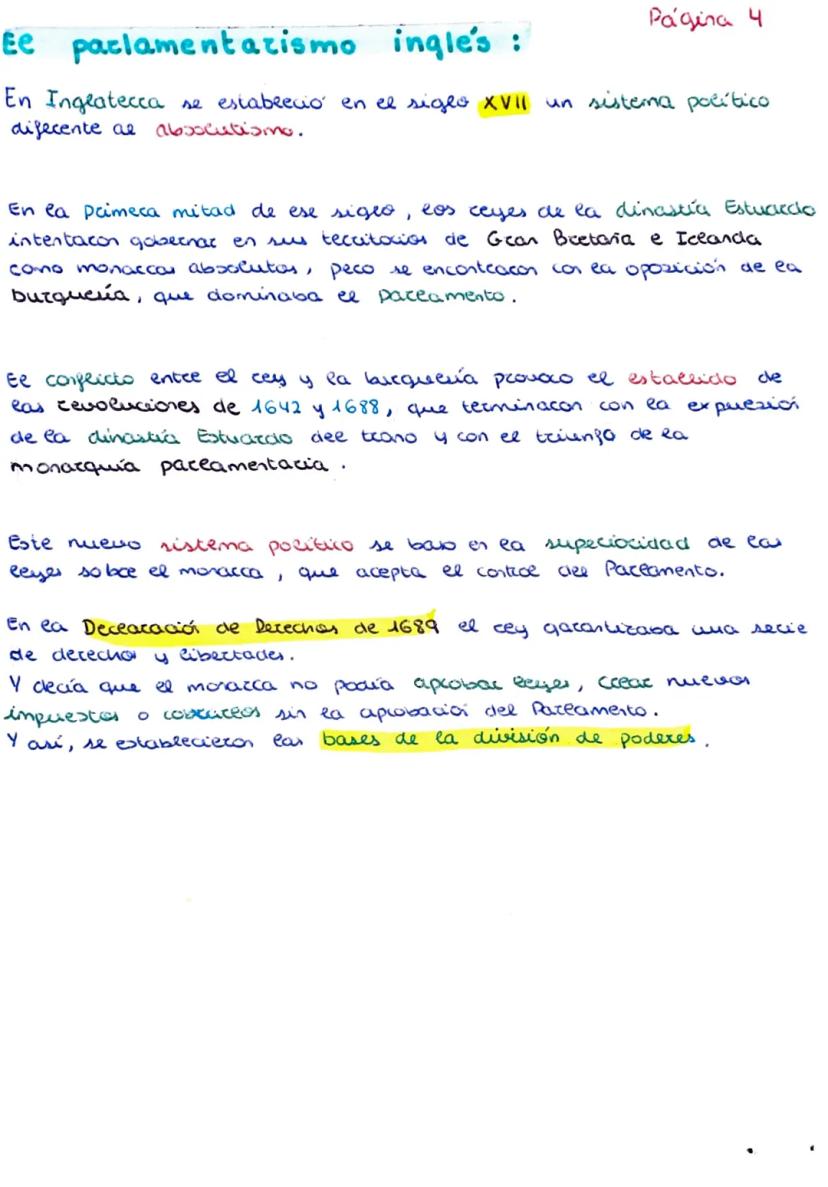 Página 4
El parlamentarismo inglés :
En Inglaterra se estableció en el siglo XVII un sistema político
diferente al absolutismo.
En la primera mitad de ese siglo, los reyes de la dinastía Estuardo
intentaron gobernar en sus territorios de Gran Bretaña e Irlanda
como monarcas absolutos, pero se encontraron con la oposición de la
burguesía, que dominaba el parlamento.
El conflicto entre el rey y la burguesía provoco el estallido de
las revoluciones de 1642 y 1688, que terminaron con la expulsión
de la dinastía Estuardo del trono y con el triunfo de la
monarquía parlamentaria.
Este nuevo sistema político se baso en la superioridad de las
leyes sobre el monarca, que acepta el control del Parlamento.
En la Declaración de Derechos de 1689 el rey garantizaba una serie
de derechos y libertades.
Y decía que el monarca no podía aprobar leyes, crear nuevos
impuestos o cobrarlos sin la aprobación del Parlamento.
Y así, se establecieron las bases de la división de poderes.